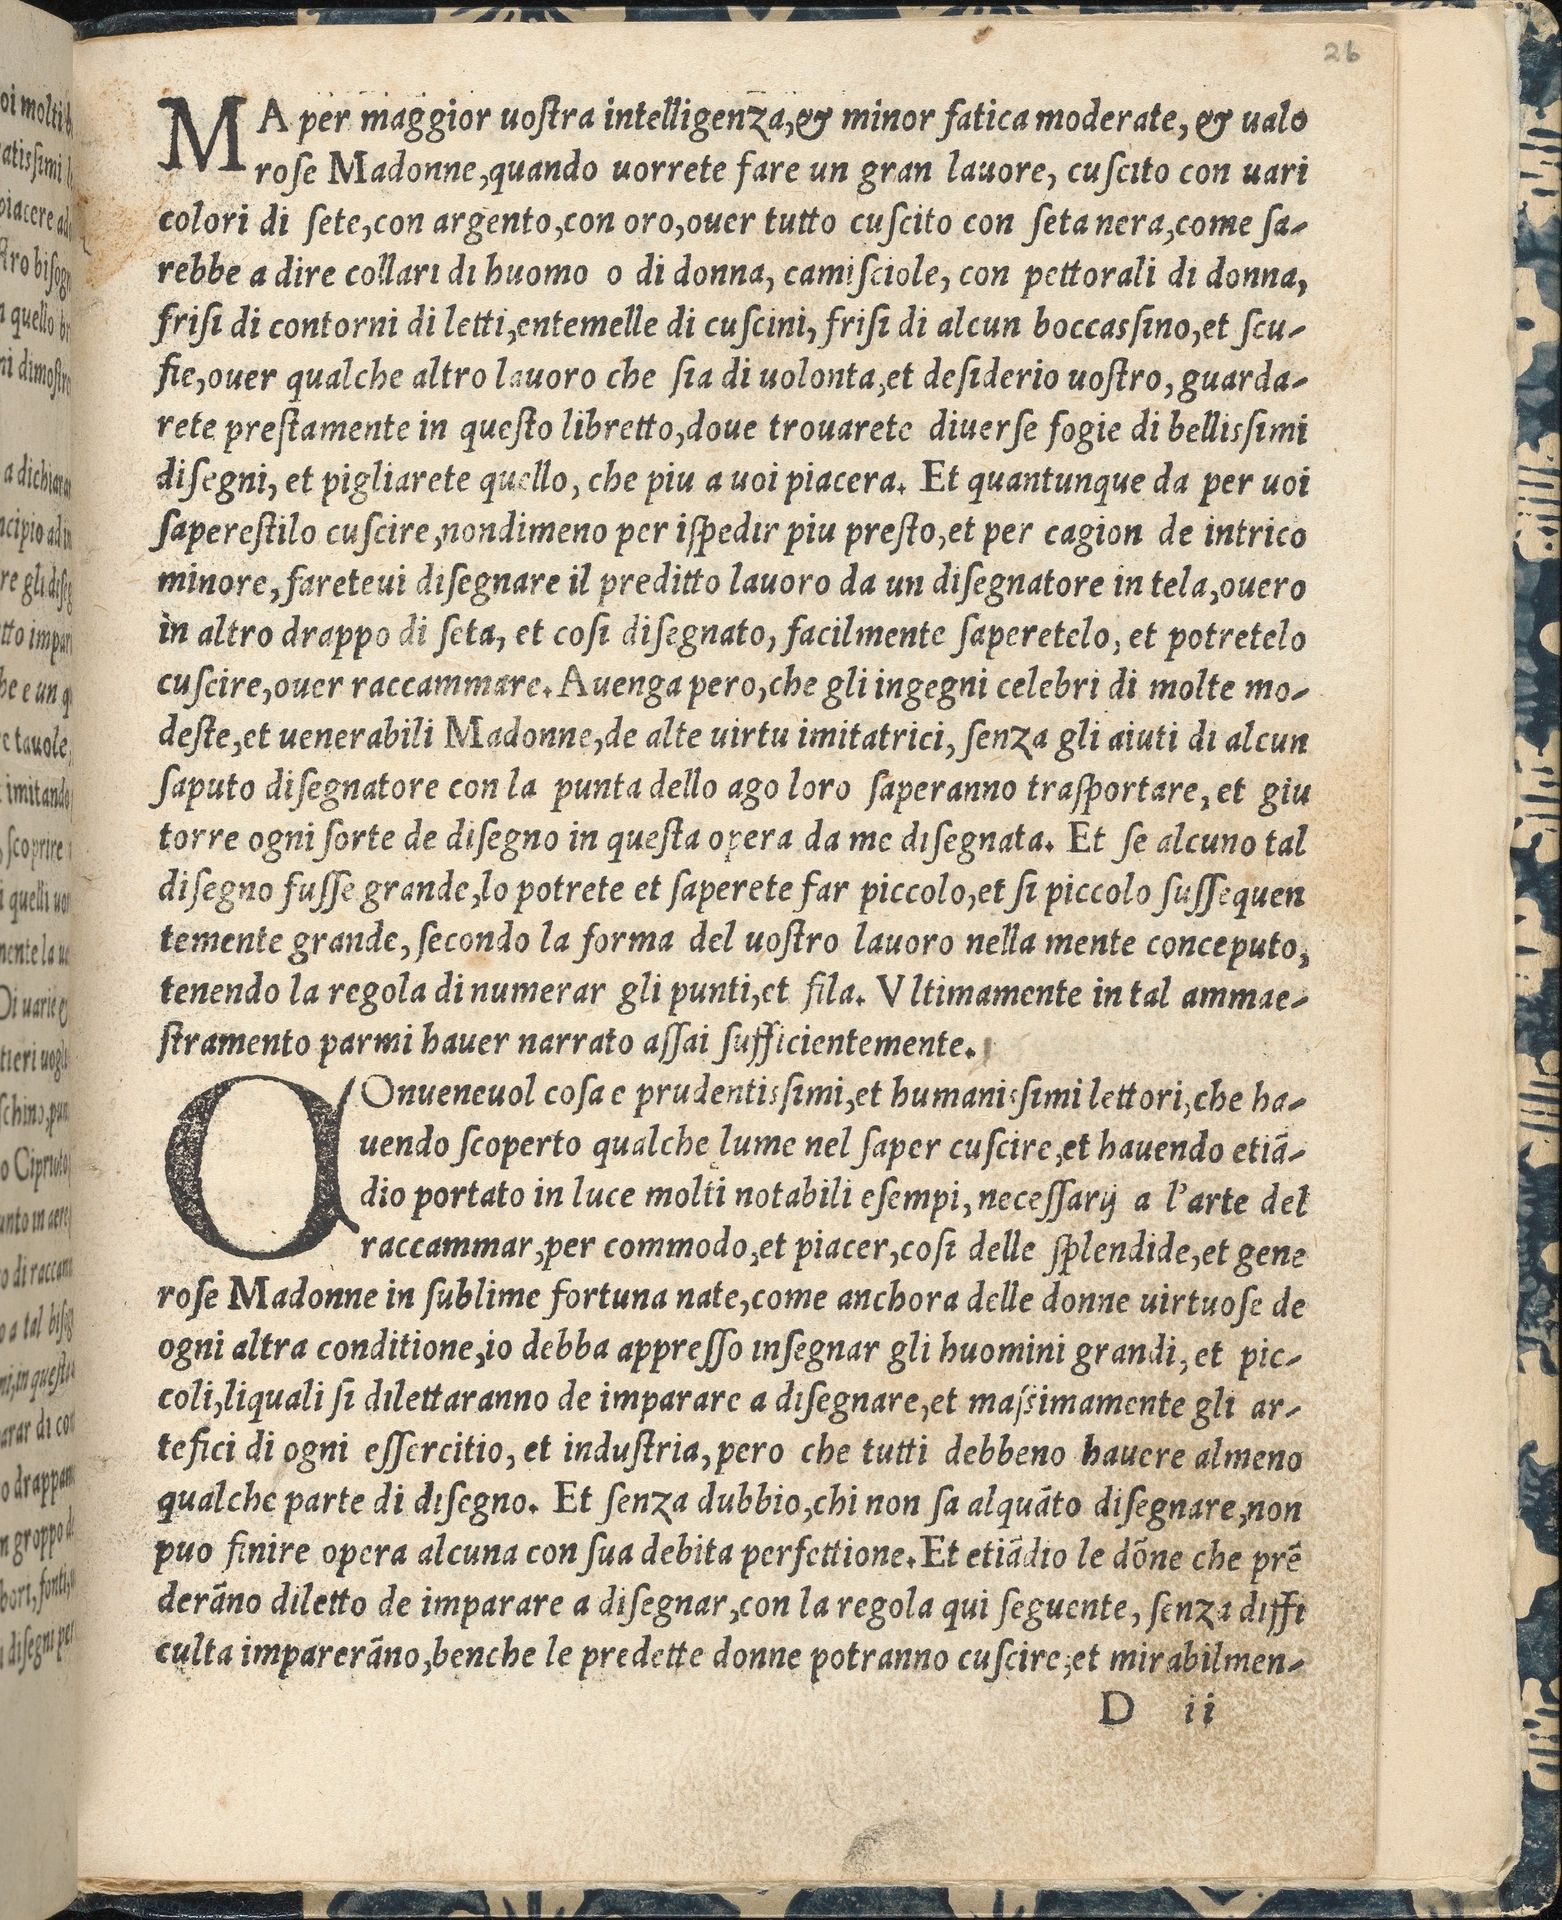 26
MA per maggior uoſtra intelligenza,& minor fatica moderate, & ualo
roſe Madonne,quando uorrete fare un gran lauore, cuſcito con uari
colori di ſete,con argento,con oro,ouer tutto cuſcito con ſeta nera,come ſa-
rebbe a dire collari di huomo o di donna, camiſciole, con pettorali di donna,
friſi di contorni di letti,entemelle di cuſcini, friſi di alcun boccasſino,et ſcu-
fie,ouer qualche altro lauoro che ſia di uolonta,et deſiderio uoſtro, guarda-
rete preſtamente in queſto libretto,doue trouarete diuerſe fogie di bellisſimi
diſegni, et pigliarete quello, che piu a uoi piacera. Et quantunque da per uoi
ſapereſtilo cuſcire,nondimeno per iſpedir piu preſto,et per cagion de intrico
minore, fareteui diſegnare il preditto lauoro da un diſegnatore in tela,ouero
in altro drappo di ſeta, et coſi diſegnato, facilmente ſaperetelo, et potretelo
cuſcire,ouer raccammare. Auenga pero,che gli ingegni celebri di molte mo-
deſte,et uenerabili Madonne,de alte uirtu imitatrici, ſenza gli aiuti di alcun
ſaputo diſegnatore con la punta dello ago loro ſaperanno traſportare, et giu
torre ogni ſorte de diſegno in queſta opera da me diſegnata. Et ſe alcuno tal
diſegno fuſſe grande,lo potrete et ſaperete far piccolo,et ſi piccolo ſuſſequen
temente grande, ſecondo la forma del uoſtro lauoro nella mente conceputo,
tenendo la regola di numerar gli punti,et fila. Vltimamente in tal ammae-
ſtramento parmi hauer narrato aſſai ſufficientemente.
COnueneuol coſa e prudentisſimi,et humanisſimi lettori,che ha-
uendo ſcoperto qualche lume nel ſaper cuſcire,et hauendo etiā-
dio portato in luce molti notabili eſempi, neceſſarij a l'arte del
raccammar,per commodo,et piacer,coſi delle ſplendide,et gene
roſe Madonne in ſublime fortuna nate,come anchora delle donne uirtuoſe de
ogni altra conditione,io debba appreſſo inſegnar gli huomini grandi, et pic-
coli,liquali ſi dilettaranno de imparare a diſegnare,et masſimamente gli ar-
tefici di ogni eſſercitio, et induſtria, pero che tutti debbeno hauere almeno
qualche parte di diſegno. Et ſenza dubbio,chi non ſa alquāto diſegnare,non
puo finire opera alcuna con ſua debita perfettione. Et etiādio le dōne che prē
derāno diletto de imparare a diſegnar,con la regola qui ſeguente, ſenza diffi
culta imparerāno,benche le predette donne potranno cuſcire,et mirabilmen-
D ii